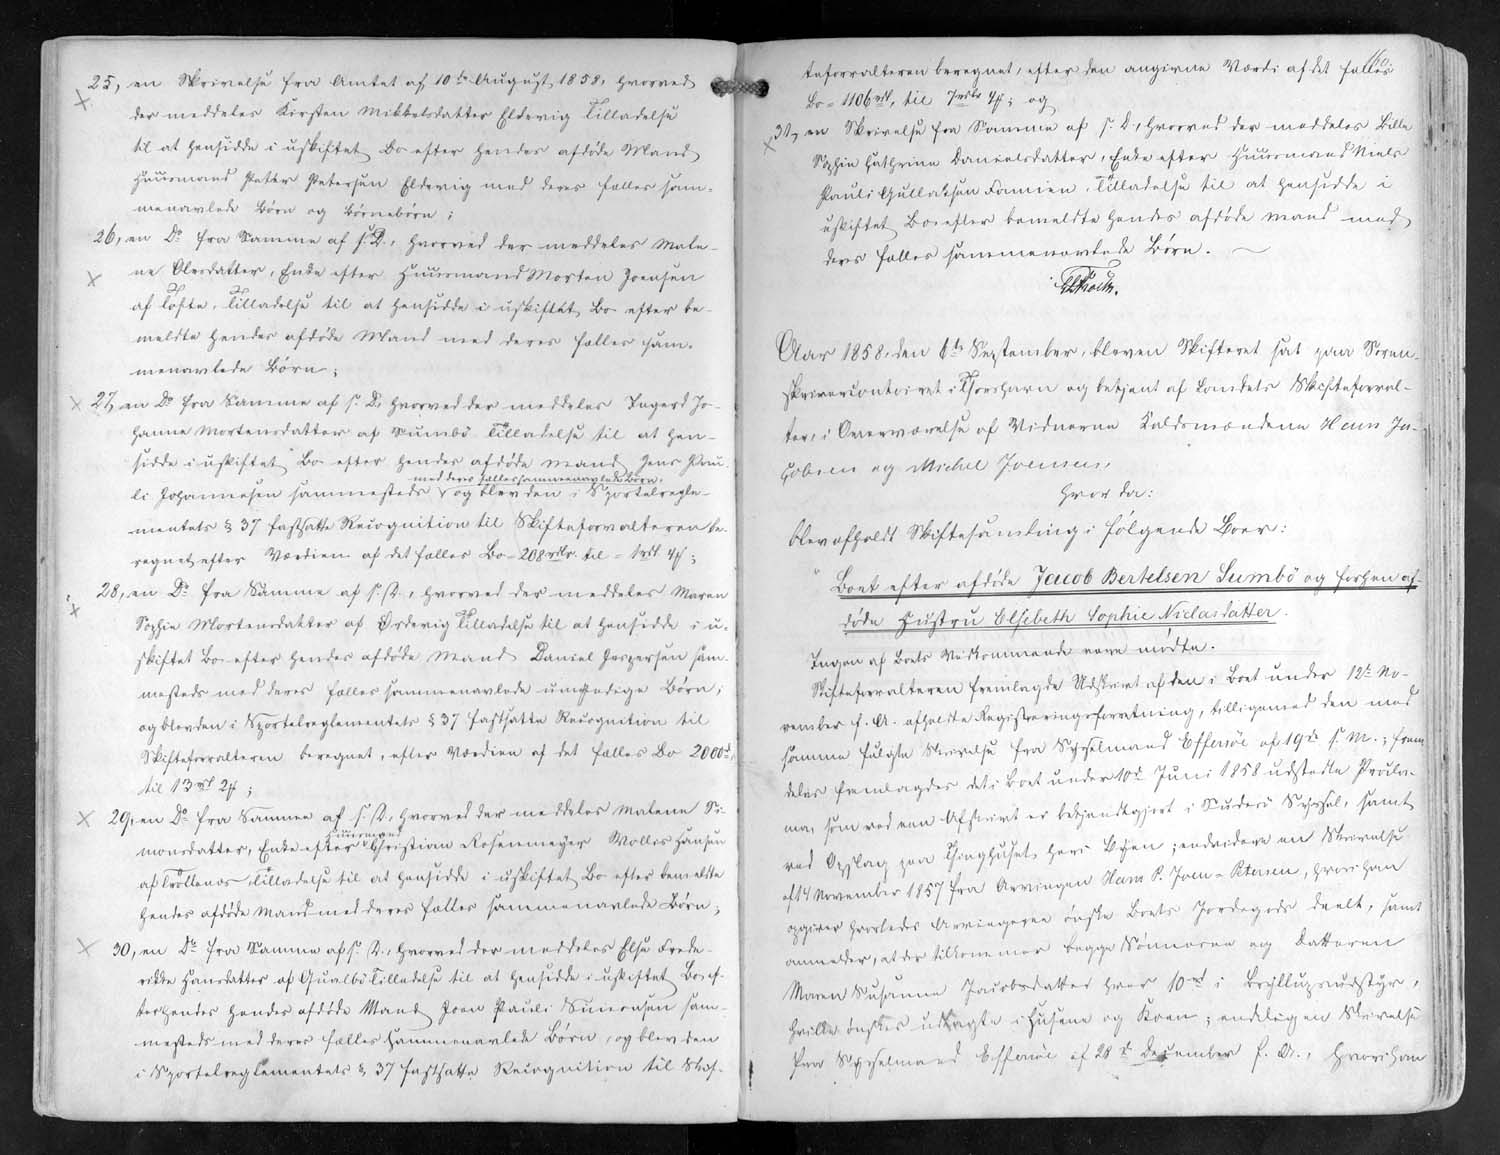 25, en Skrivelse fra Amtet af 10de August 1858, hvorved
der meddeles Kirsten Mikkelsdatter Eldevig Tilladelse
til at hensidde i uskiftet Bo efter hendes afdøde Mand
Huusmand Peter Petersen Eldevig med deres fælles sam-
menavlede Børn og Børnebørn;
26, en Do fra Samme af s. D., hvorved der meddeles Male-
ne Olesdatter, Enke efter Huusmand Morten Joensen
af Tofte, Tilladelse til at hensidde i uskiftet Bo efter be-
meldte hendes afdøde Mand med deres fælles sam-
menavlede Børn;
27, en Do fra Samme af s. D., hvorved der meddeles Ingerd Jo-
hanne Mortensdatter af Sumbö Tilladelse til at hen-
sidde i uskiftet Bo efter hendes afdøde Mand Jens Pau-
med deres fælles sammenavlede Børn,
li Johannesen sammesteds og blev den i Sportelregle-
mentets § 37 fastsatte Recognition til Skifteforvalteren be-
regnet efter Værdien af det fælles Bo = 208 rdlr. til = 1 rdl. 4 ß;
28, en Do fra Samme af s. D., hvorved der meddeles Maren
Sophie Mortensdatter af Ördevig Tilladelse til at hensidde i u-
skiftet Bo efter hendes afdøde Mand Daniel Jespersen sam-
mesteds med deres fælles sammenavlede umyndige Børn;
og blev den i Sportelreglementets § 37 fastsatte Recognition til
Skifteforvalteren beregnet, efter Værdien af det fælles Bo 2000 rd,
til 13 rdl 2 ß;
29, en Do fra Samme af s. D., hvorved der meddeles Malene Si-
Huusmand
monsdatter, Enke efter Christian Rosenmeyer Wolles Hansen
af Tilladelse til at hensidde i uskiftet Bo efter bemeldte
hendes afdøde Mand med deres fælles sammenavlede Børn;
30, en Do fra Samme af s. D., hvorved der meddeles Else Frede-
rikke Hansdatter af Qualbö Tilladelse til at hensidde i uskiftet Bo ef-
ter hendes hendes afdøde Mand Joen Pauli Simonsen sam-
mesteds med deres fælles sammenavlede Børn, og blev den
i Sportelreglementets § 37 fastsatte Recognition til Skif-
160.
teforvalteren beregnet, efter den angivne Værdi af det fælles
Bo = 1106 rdl, til 7 rdlr 4 ß; og
31, en Skrivelse fra Samme af s. D., hvorved der meddeles Bille
Sophie Cathrine Danielsdatter, Enke efter Huusmand Niels
Pauli Gullaksen Famien, Tilladelse til at hensidde i
uskiftet Bo efter bemeldte hendes afdøde Mand med
deres fælles sammenavlede Børn.
Aar 1858, den 6te September, bleven Skifteret sat paa Soren-
skrivercontoiret i Thorshavn og betjent af Landets Skifteforval-
ter, i Overværelse af Vidnerne Kaldsmændene Hans Ja-
cobsen og Michel Joensen,
hvor da:
blev afholdt Skiftesamling i følgende Boer:
Boet efter afdøde Jacob Bertelsen Sumbö og forhen af-
døde Hustru Elsebeth Sophie Niclasdatter.
Ingen af Boets Vedkommende vare mødte.
Skifteforvalteren fremlagde Udskrivt af den i Boet under 12te No-
vember f. A. afholdte Registreringsforretning, tilligemed den med
samme fulgte Skrivelse fra Sysselmand Effersöe af 19de s. M.; frem-
deles fremlagdes det i Boet under 10de Juni 1858 udstedte Procla-
ma, som ved een Afskrivt er bekjendtgjort i Suderö Syssel, samt
ved Opslag paa Thinghuset her i Byen; endvidere en Skrivelse
af 14 November 1857 fra Arvingen Hans P. Joen-Petersen, hvori han
opgiver hvorledes Arvingerne ønske Boets Jordegods deelt, samt
anmelder, at der tilkommer begge Sønnerne og Datteren
Maren Susanne Jacobsdatter hver 10 rd i Bryllupsudstyr,
hvilke ønskes udlagte i Husene og Koen; endelig en Skrivelse
fra Sysselmand Effersöe af 28de December f. A., hvori han